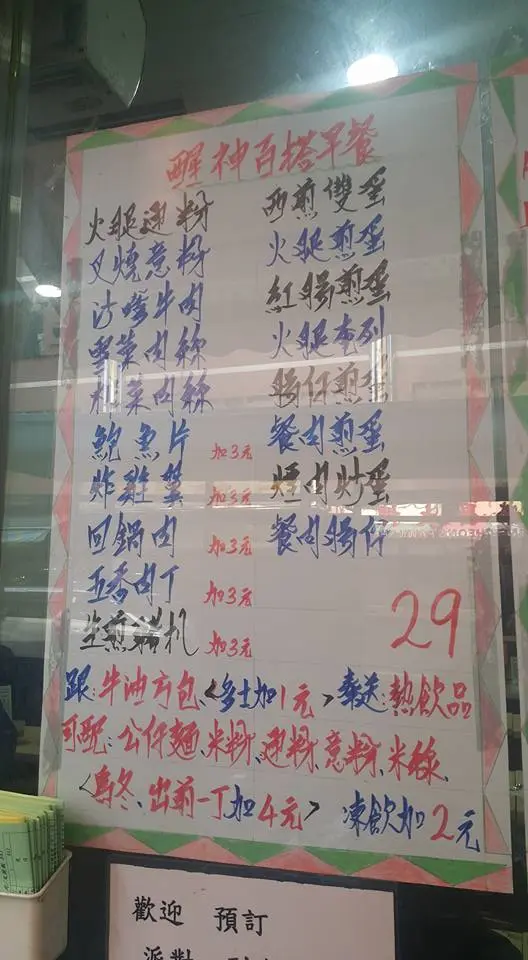 醒神百搭早餐
火腿通粉
叉燒意粉
沙嗲牛肉
雪菜肉絲
榨菜肉絲
鮑魚片 加3元
炸雞翼 加3元
回鍋肉 加3元
五香肉丁 加3元
生煎豬扒 加3元
西煎雙蛋
火腿煎蛋
紅腸煎蛋
火腿奄列
腸仔煎蛋
餐肉煎蛋
煙肉炒蛋
餐肉腸仔
29
跟:牛油方包<多士加1元>奉送:熱飲品
可配:公仔麵、米粉、通粉、意粉、米線、
<烏冬、出前一丁加4元> 凍飲加2元
歡迎 預訂
派對